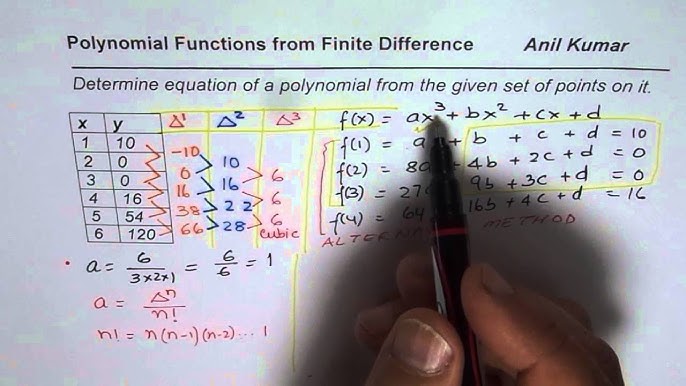 Polynomial Functions from Finite Difference Anil Kumar
Determine equation of a polynomial from the given set of points on it.
x y Δ¹ Δ² Δ³
1 10
2 0
3 0
4 16
5 54
6 120
-10
0
16
38
66
10
16
22
28
6
6
6
cubic
f(x) = ax³ + bx² + cx + d
f(1) = a + b + c + d = 10
f(2) = 8a + 4b + 2c + d = 0
f(3) = 27 9b + 3c + d = 0
f(4) = 64 16b + 4c + d = 16
METHOD
• a = 6 / 3×2×1 = 6 / 6 = 1
a = Δⁿ / n!
n! = n(n-1)(n-2)... 1